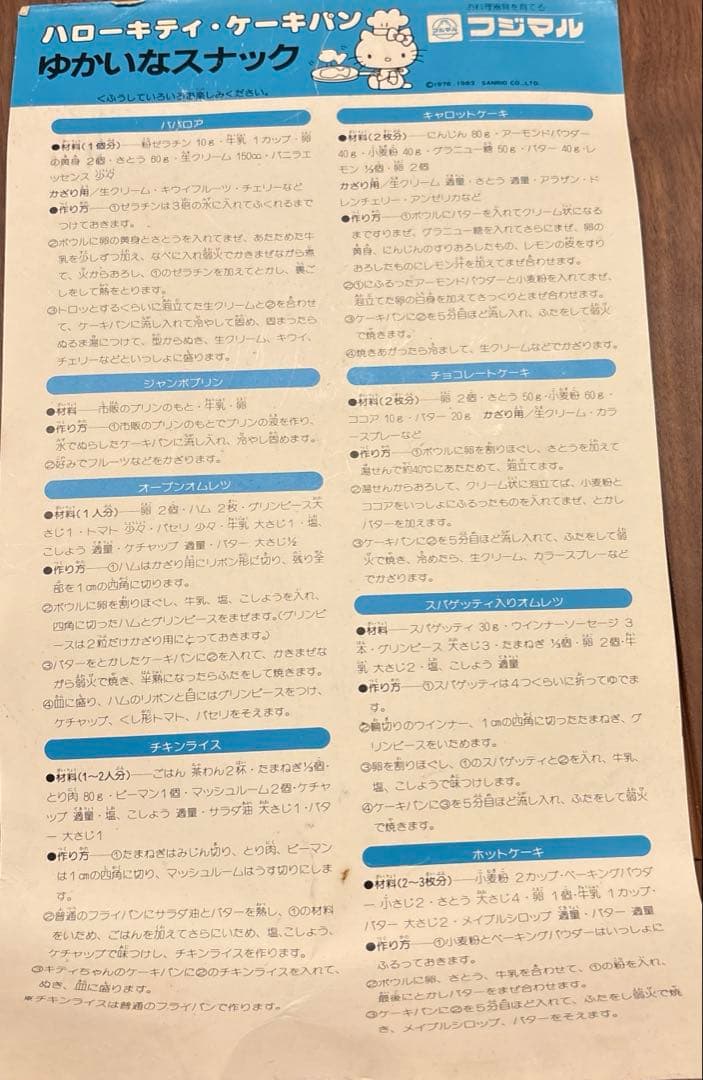 ハローキティ・ケーキパン
ゆかいなスナック
お料理器具を育てる
フジマル
フジマル
©1976, 1983 SANRIO CO., LTD.
くふうしていろいろお楽しみください。
ババロア
●材料(1個分)——粉ゼラチン 10g・牛乳 1カップ・卵
の黄身 2個・さとう 60g・生クリーム 150cc・バニラエ
ッセンス 少々
かざり用/生クリーム・キウイフルーツ・チェリーなど
●作り方——①ゼラチンは3倍の水に入れてふくれるまで
つけておきます。
②ボウルに卵の黄身とさとうを入れてまぜ、あたためた牛
乳を少しずつ加え、なべに入れ弱火でかきまぜながら煮
て、火からおろし、①のゼラチンを加えてとかし、裏ご
しをして熱をとります。
③トロッとするくらいに泡立てた生クリームと②を合わせ
て、ケーキパンに流し入れて冷やして固め、固まったら
ぬるま湯につけて、型からぬき、生クリーム、キウイ、
チェリーなどといっしょに盛ります。
ジャンボプリン
●材料——市販のプリンのもと・牛乳・卵
●作り方——①市販のプリンのもとでプリンの液を作り、
水でぬらしたケーキパンに流し入れ、冷やし固めます。
②好みでフルーツなどをかざります。
オープンオムレツ
●材料(1人分)——卵 2個・ハム 2枚・グリンピース大
さじ1・トマト 少々・パセリ 少々・牛乳 大さじ1・塩、
こしょう 適量・ケチャップ 適量・バター 大さじ½
●作り方——①ハムはかざり用にリボン形に切り、残り全
部を1cmの四角に切ります。
②ボウルに卵を割りほぐし、牛乳、塩、こしょうを入れ、
四角に切ったハムとグリンピースをまぜます。(グリンピ
ースは2粒だけかざり用にとっておきます。)
③バターをとかしたケーキパンに②を入れて、かきまぜな
がら弱火で焼き、半熟になったらふたをして焼きます。
④皿に盛り、ハムのリボンと目にはグリンピースをつけ、
ケチャップ、くし形トマト、パセリをそえます。
チキンライス
●材料(1~2人分)——ごはん 茶わん2杯・たまねぎ⅓個・
とり肉 80g・ピーマン1個・マッシュルーム2個・ケチャ
ップ 適量・塩、こしょう 適量・サラダ油 大さじ1・バタ
ー 大さじ1
●作り方——①たまねぎはみじん切り、とり肉、ピーマン
は1cmの四角に切り、マッシュルームはうす切りにしま
す。
②普通のフライパンにサラダ油とバターを熱し、①の材料
をいため、ごはんを加えてさらにいため、塩、こしょう、
ケチャップで味つけし、チキンライスを作ります。
③キティちゃんのケーキパンに②のチキンライスを入れて、
ぬき、皿に盛ります。
※チキンライスは普通のフライパンで作ります。
キャロットケーキ
●材料(2枚分)——にんじん 80g・アーモンドパウダー
40g・小麦粉 40g・グラニュー糖 50g・バター 40g・レ
モン ⅓個・卵 2個
かざり用/生クリーム 適量・さとう 適量・アラザン・ド
レンチェリー・アンゼリカなど
●作り方——①ボウルにバターを入れてクリーム状になる
まですりまぜ、グラニュー糖を入れてさらにまぜ、卵の
黄身、にんじんのすりおろしたもの、レモンの皮をすり
おろしたものにレモン汁を加えてまぜ合わせます。
②①にふるったアーモンドパウダーと小麦粉を入れてまぜ、
泡立てた卵の白身を加えてさっくりとまぜ合わせます。
③ケーキパンに②を5分目ほど流し入れ、ふたをして弱火
で焼きます。
④焼きあがったら冷まして、生クリームなどでかざります。
チョコレートケーキ
●材料(2枚分)——卵 2個・さとう 50g・小麦粉 60g・
ココア 10g・バター 20g かざり用/生クリーム・カラ
ースプレーなど
●作り方——①ボウルに卵を割りほぐし、さとうを加えて
湯せんで約40℃にあたためて、泡立てます。
②湯せんからおろして、クリーム状に泡立てば、小麦粉と
ココアをいっしょにふるったものを入れてまぜ、とかし
バターを加えます。
③ケーキパンに②を5分目ほど流し入れて、ふたをして弱
火で焼き、冷めたら、生クリーム、カラースプレーなど
でかざります。
スパゲッティ入りオムレツ
●材料——スパゲッティ 30g・ウインナーソーセージ 3
本・グリンピース 大さじ3・たまねぎ ⅓個・卵 2個・牛
乳 大さじ2・塩、こしょう 適量
●作り方——①スパゲッティは4つくらいに折ってゆでま
す。
②輪切りのウインナー、1cmの四角に切ったたまねぎ、グ
リンピースをいためます。
③卵を割りほぐし、①のスパゲッティと②を入れ、牛乳、
塩、こしょうで味つけします。
④ケーキパンに③を5分目ほど流し入れ、ふたをして弱火
で焼きます。
ホットケーキ
●材料(2~3枚分)——小麦粉 2カップ・ベーキングパウダ
ー 小さじ2・さとう 大さじ4・卵 1個・牛乳 1カップ・
バター 大さじ2・メイプルシロップ 適量・バター 適量
●作り方——①小麦粉とベーキングパウダーはいっしょに
ふるっておきます。
②ボウルに卵、さとう、牛乳を合わせて、①の粉を入れ、
最後にとかしバターをまぜ合わせます。
③ケーキパンに②を5分目ほど入れて、ふたをし弱火で焼
き、メイプルシロップ、バターをそえます。